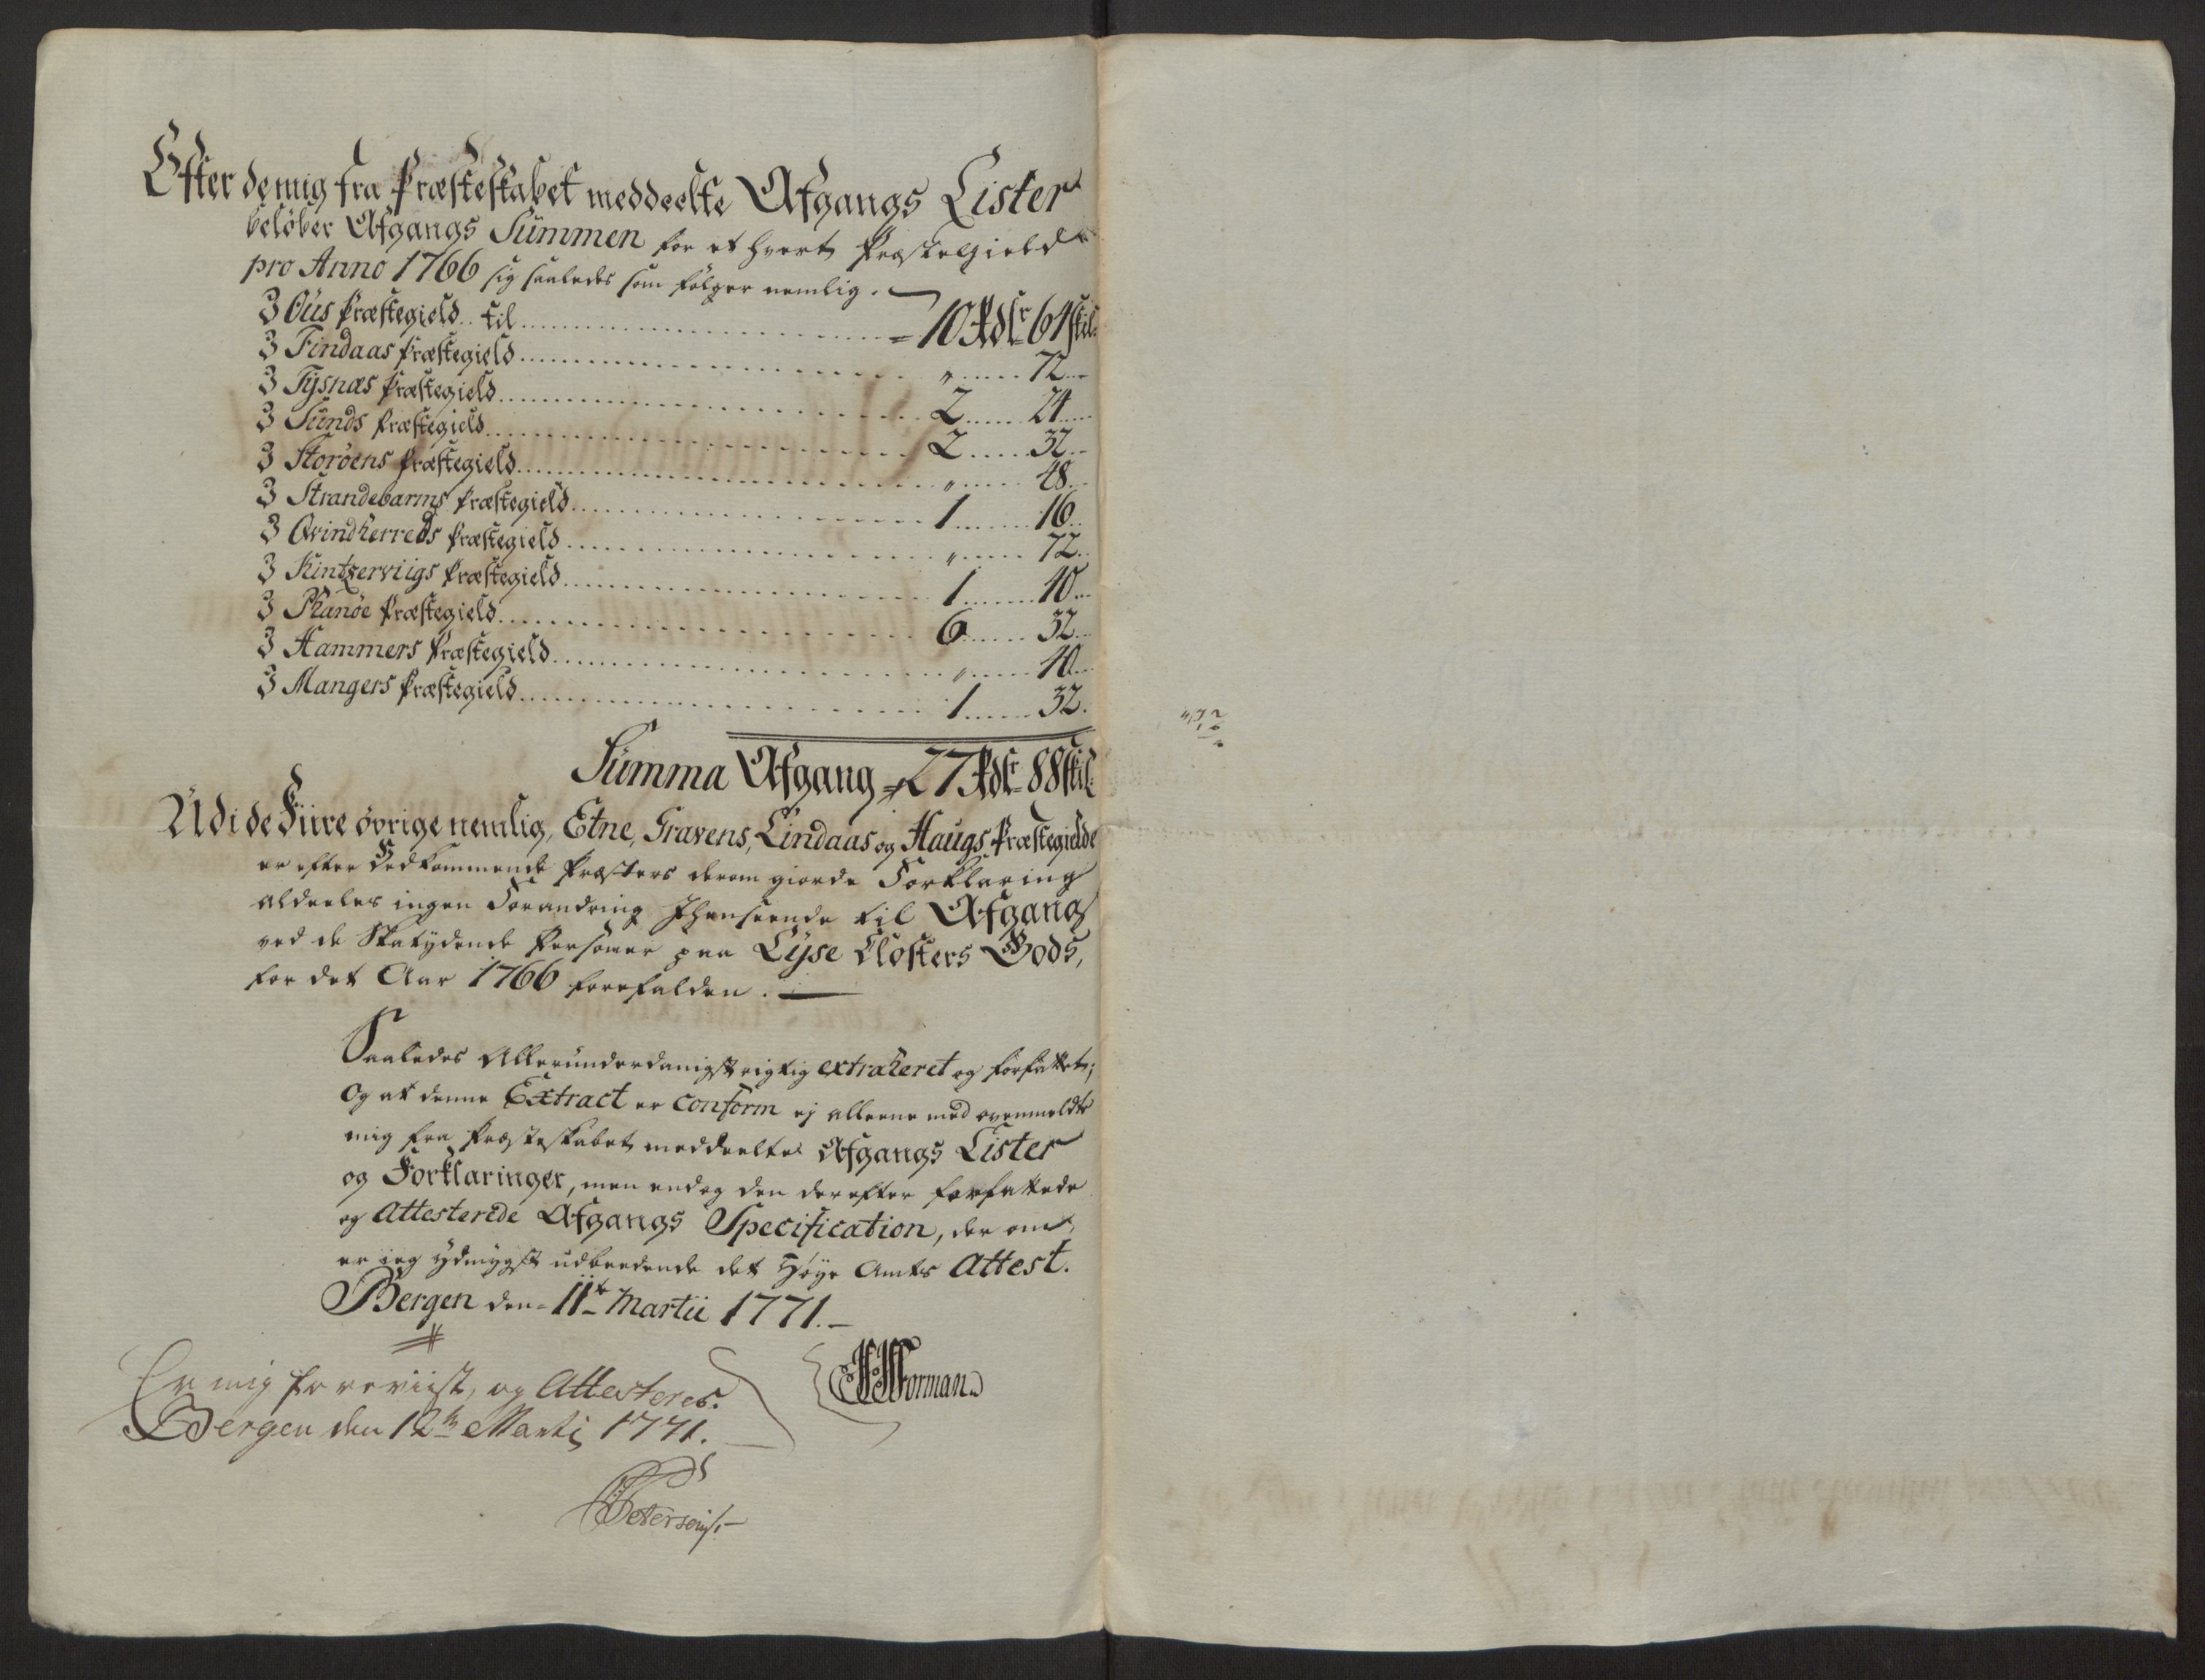 Efter de mig fra Præsteskabet meddeelte Afgangs Lister
beløber Afgangs Summen for et hvert Præstegield
pro Anno 1766 sig saaledes som følger nemlig.
I Ous Præstegield.. til = 10 Rdlr 64 skil:
I Findaas Præstegield " 72
I Tysnæs Præstegield 2 24
I Sunds Præstegield 2 32
I Storøens Præstegield " 48
I Strandebarms Præstegield 1 16
I Qvindherreds Præstegield " 72
I Kintzerviigs Præstegield 1 40
I Phanøe Præstegield 6 32
I Hammers Præstegield " 40
I Mangers Præstegield 1 32.
Summa Afgang = 27 Rdlr 88 skil:
Udi de Fiire øvrige nemlig, Etne, Gravens, Lindaas og Haugs Præstegielde
er efter Vedkommende Præsters derom giorde Forklaring
aldeeles ingen Forandring Ihenseende til Afgang
ved de Skatydende Personer paa Lyse Closters Gods,
for det Aar 1766 forefalden.
Saaledes Allerunderdanigst rigtig extraheret og forfattet;
Og at denne Extract er conform ej alleene med ovenmeldte
mig fra Præsteskabet meddeelte Afgangs Lister
og Forklaringer, men endog den derefter forfattede
og Attesterede Afgangs Specification, der om
er jeg ydmygst udbeedende det Høye Amts Attest.
Bergen den 11te Martii 1771.
Er mig foreviist, og Attesteres.
Forman
Bergen den 12te Martij 1771.
Petersen